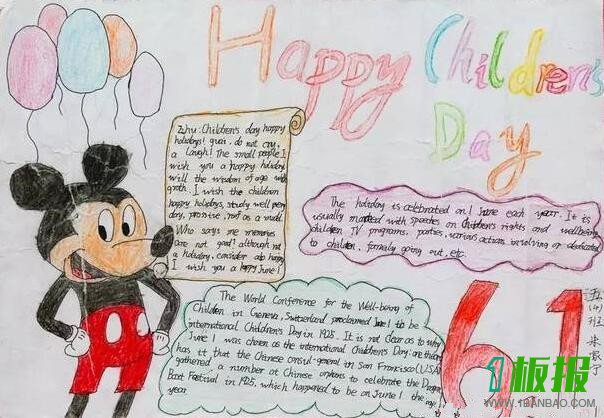 Happy Children's
Day
Zshy: Children's day happy
holidays! guai, do not cry,
a laugh! The small people I
wish you a happy holiday
will the wisdom of age with
groth. I wish the children
happy holidays, study well every
day, promise, not as a wall.
Who says me memories
are not good! although not
a holiday, consider alo happy
I wish you a happy June!
The holiday is celebrated on 1 June each year. It is
usually marked with speeches on children's rights and wellbeing,
children TV programs, parties, various actions involving or dedicated
to children, formely going out, etc.
The World Conference for the Well-being of
Children in Geneva, Switzerland proclaimed June 1 to be
International Children's Day in 1925. It is not clear as to why
June 1 was chosen as the international Children's Day: one theory
has it that the Chinese consul-general in San Francisco (USA)
gathered a number of Chinese orphans to celebrate the Dragon
Boat Festival in 1925, which happened to be on June 1 the
year
61
五(4)班 朱
1板报
WWW.1BANBAO.COM